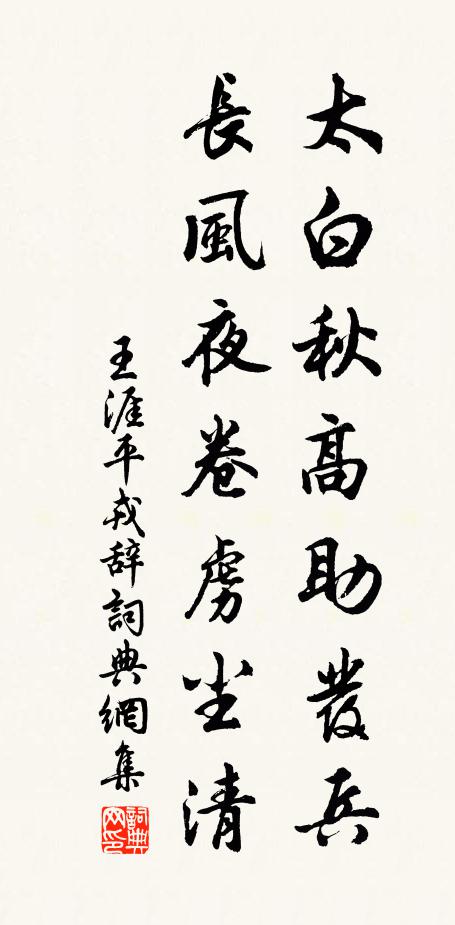 太白秋高助發兵
長風夜卷虜尘清
王涯平戎辞詞典網集
詞典网印